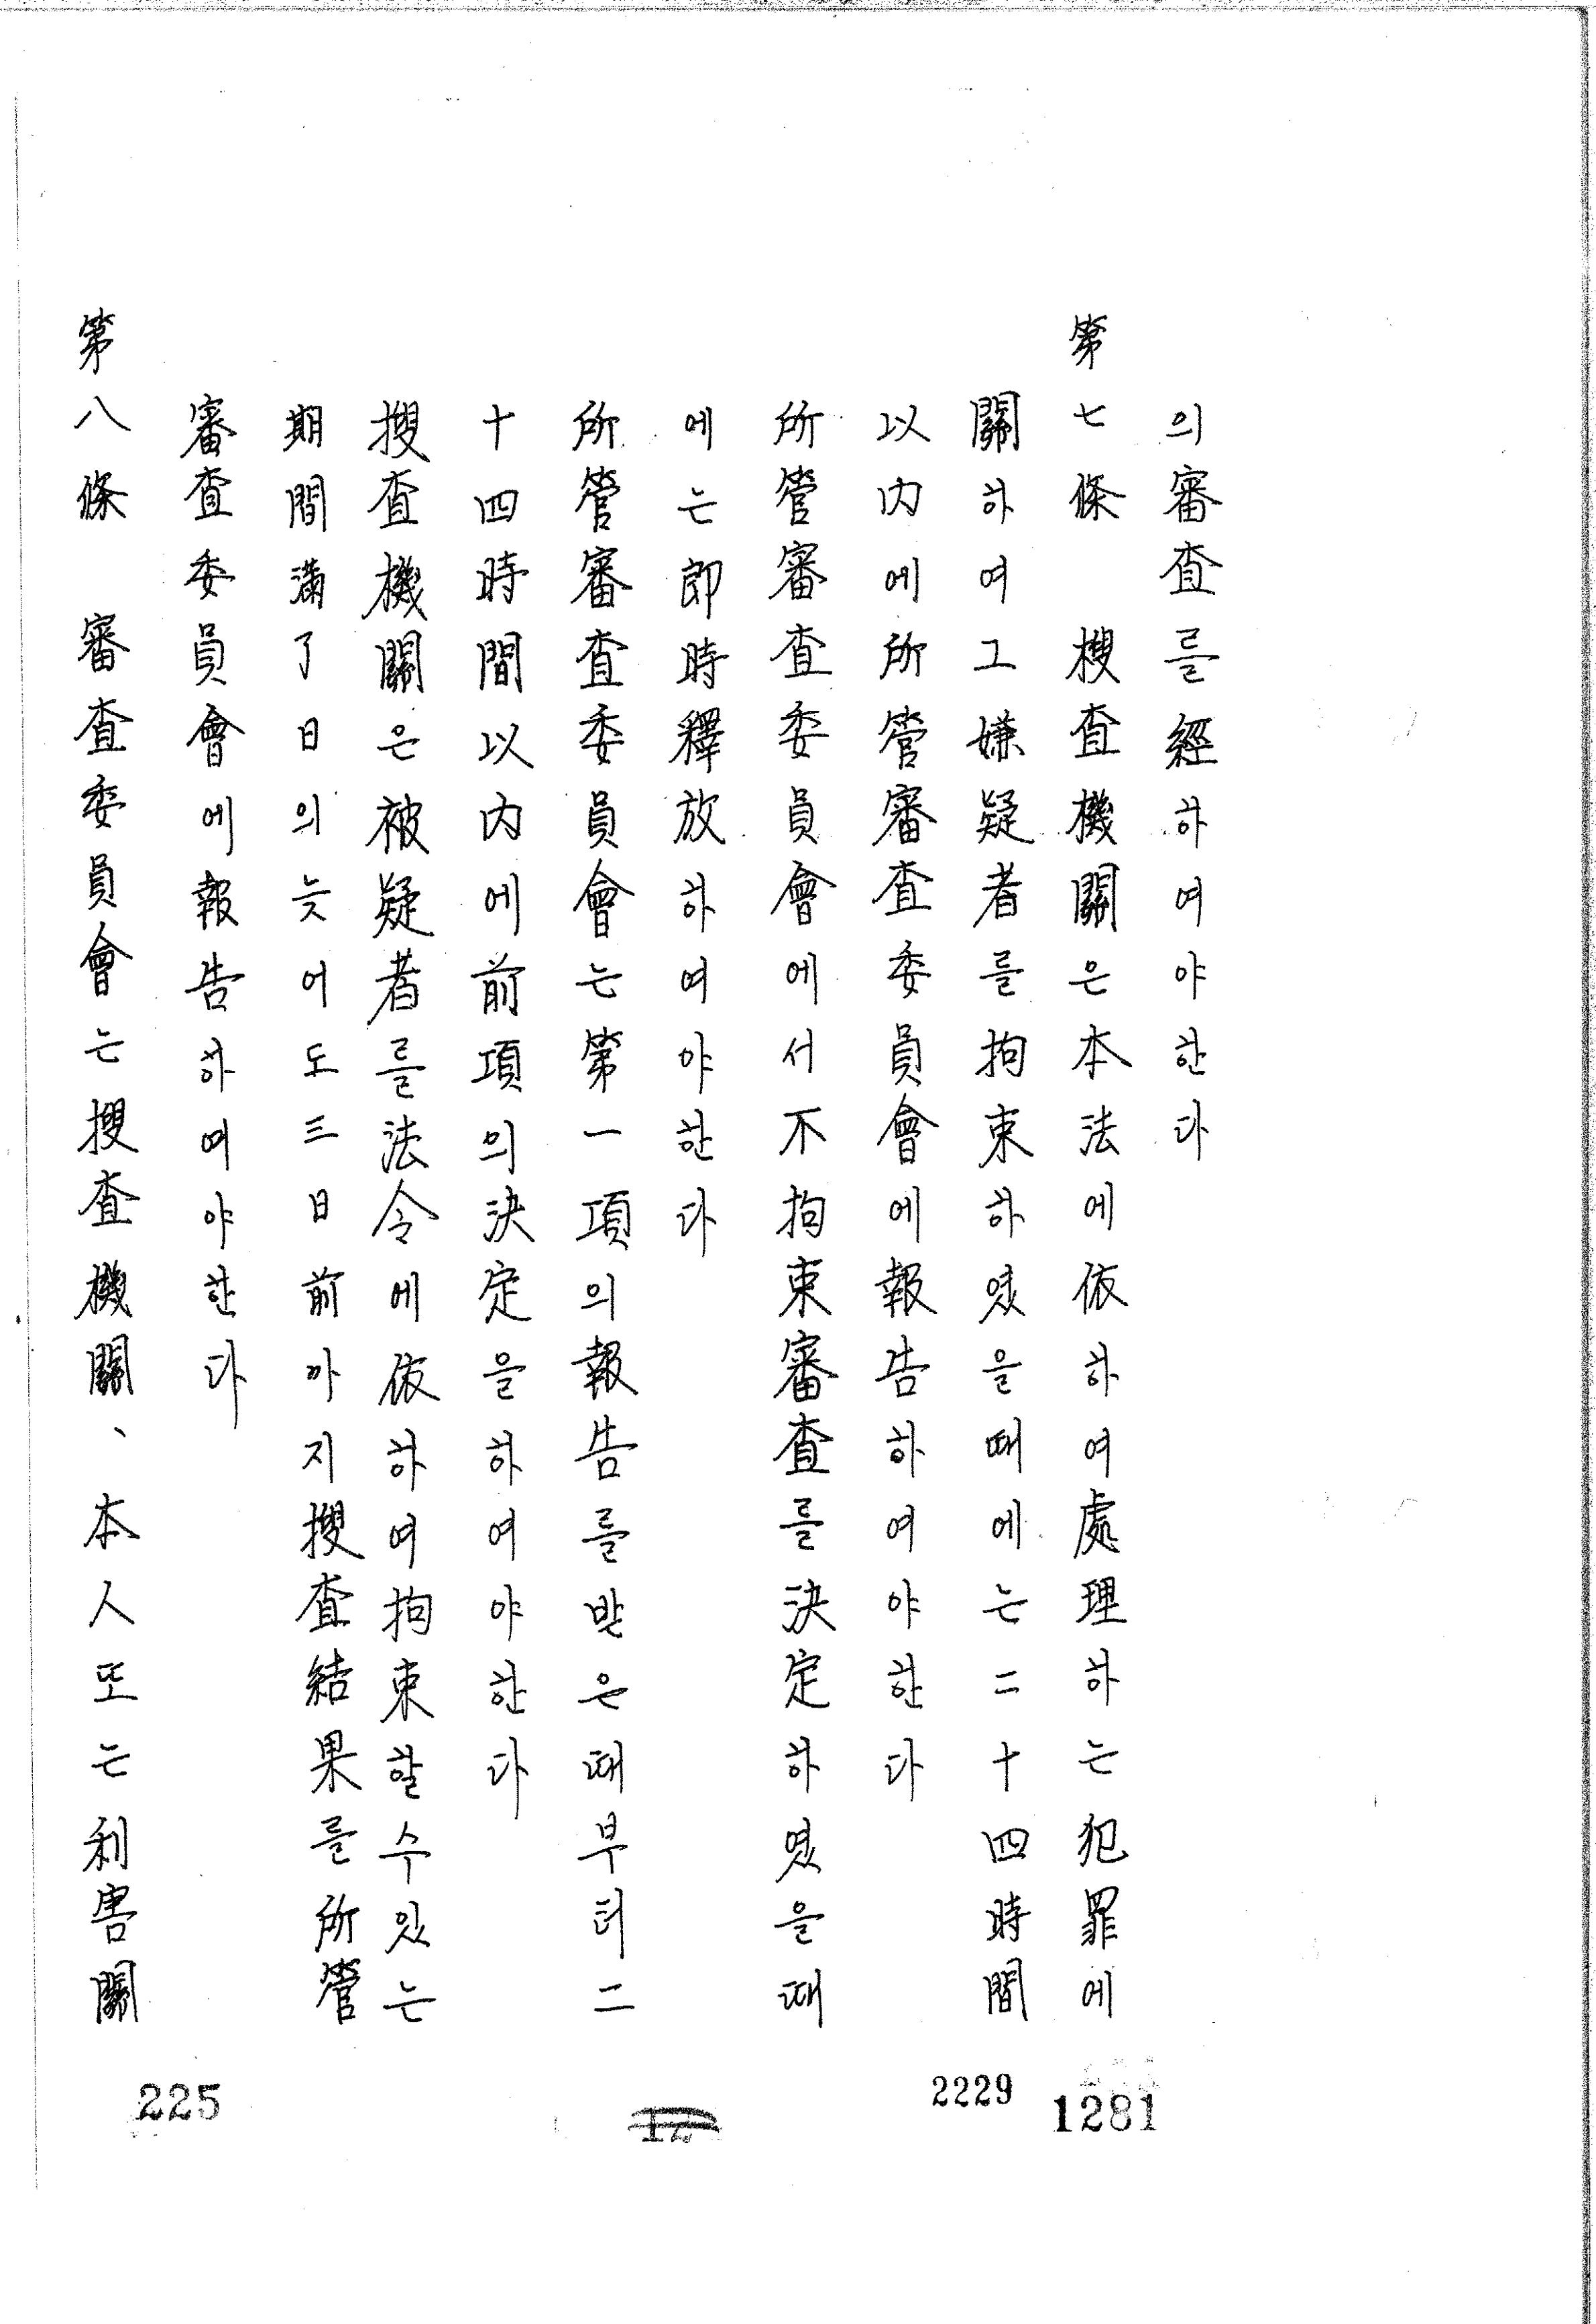 의審査를經하여야한다
第七條 搜査機關은本法에依하여處理하는犯罪에
關하여그嫌疑者를拘束하였을때에는二十四時間
以內에所管審査委員會에報告하여야한다
所管審査委員會에서不拘束審査를決定하였을때
에는即時釋放하여야한다
所管審査委員會는第一項의報告를받은때부터二
十四時間以內에前項의決定을하여야한다
搜査機關은被疑者를法令에依하여拘束할수있는
期間滿了日의늣어도三日前까지搜査結果를所管
審査委員會에報告하여야한다
第八條 審査委員會는搜査機關、本人또는利害關
225
2229
1281